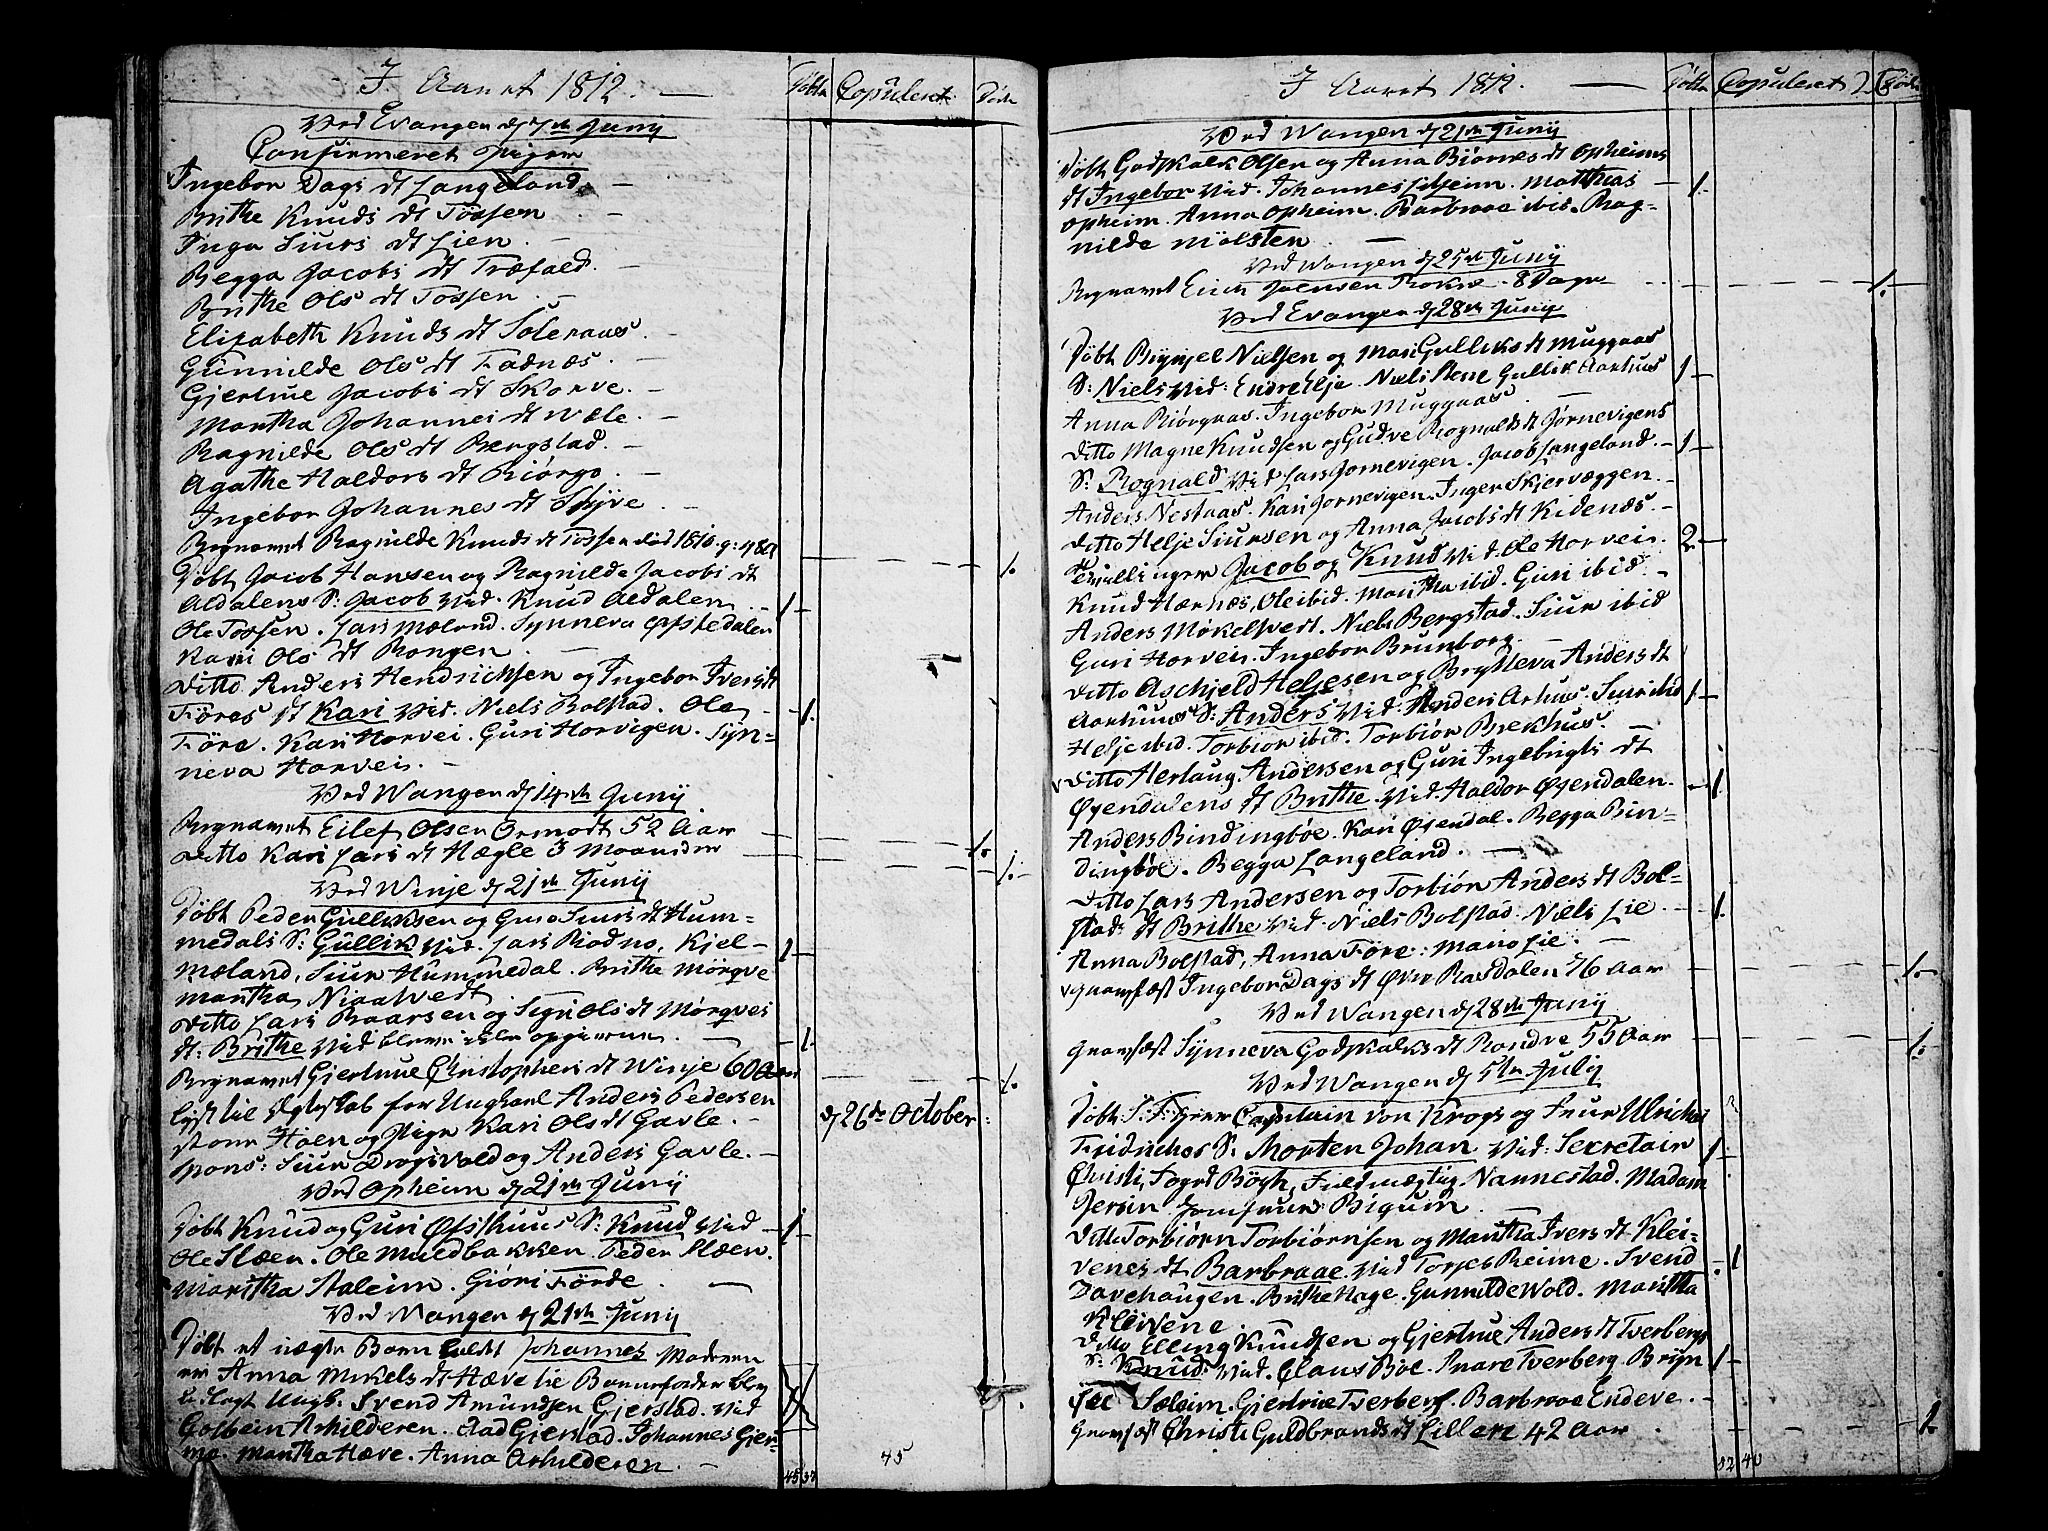 I Aaret 1812. Døbte Copuleret. Døde
Ved Evanger d 7de Juny
Confirmeret Piger
Ingebor Dags dt Langeland.
Brithe Knuds dt Tøssen
Inga Siurs dt Lien.
Begga Jacobs dt Træfald.
Brithe Ols dt Tøssen.
Elisabeth Knuds dt
Gunnilde Ols dt Fadnæs.
Giertrue Jacobs dt Skorve.
Martha Johannes dt Wæle.
Ragnilde Ols dt Bergstad.
Agathe Haldors dt Biørgo.
Ingebor Johannes dt Styve.
Begravet Ragnilde Knuds dt Tøssen
Døbt Jacob Hansen og Ragnilde Jacobs dt
Aldalens S: Jacob Vid. Knud Aldalen 1
Ole Tøssen. Lars Mæland. Synneva
Kari Ols dt Rongen.
Ditto Anders Hendrichsen og Ingebor Ivers dt
Føres dt Kari Vid. Niels Bolstad. Ole 1.
Føre. Kari Horvei. Guri Horvigen. Syn=
neva Horvei.
Ved Wangen d 14de Juny.
Begravet Eilef Olsen 52 Aar 1.
Ditto Kari Lars dt Hægle 3 Maaneder 1.
Ved Winje d 21de Juny
Døbt Peder Gulliksen og Siurs dt Hum=
medals S: Gullik Vid. Lars Rødno, Kjel 1
Mæland, Siur Hummedal. Brithe Mørqve
Martha
Ditto Lars Baarsen og Ols dt Mørqves
dt: Brithe Vid 1.
Begravet Giertrue Christophers dt Winje 60 Aar 1.
Lyst til Ægteskab for Ungkarl Anders Pedersen
og Pige Kari Ols dt Gavle. d 26de October
Spons: Siur og Anders Gavle.
Ved Opheim d 21de Juny
Døbt Knud og Guri S: Knud Vid 1
Ole Slæen. Ole Muldbakken. Peder Slæen.
Maritha Saleim. Giøri Førde.
Ved Wangen d 21de Juny
Døbt et uægte Barn kaldt Johannes Moderen
er Anna Mikels dt Hæve Barnefader blev
udlagt Ungk. Svend Amundsen Gjerstad. Vid
Gjerstad. Johannes Gjer=
me. Martha Hæve. Anna
45
I Aaret 1812. Døbte Copuleret Døde
Ved Wangen d 21de Juny
Døbt Godskalk Olsen og Anna Biørnes dt Opheims
dt Ingebor Vid. Johannes Matthias 1.
Opheim. Anna Opheim. Barbroe ibid. Rag=
nilde Mølster.
Ved Wangen d 25de Juny
Begravet Erich Joensen Rokne 8 Dage 1.
Ved Evanger d 28de Juny
Døbt Brynjel Nielsen og Mari Gulliks dt Muggaas
S: Niels Vid: Endre Gullik Aarhus 1
Anna Biørgaas. Ingebor Muggaas.
Ditto Magne Knudsen og Gudve Rognalds dt Jørnevigens
S: Rognald Vid Lars Jørnevigen. Jacob Langeland. 1
Anders Nestaas. Kari Jørnevigen. Inger Skjervæggen.
Ditto Helje Siursen og Anna Jacobs dt Kidenæs.
Tvillinger Jacob og Knud Vid. Ole Horvei. 2
Knud Hærnæs, Ole ibid. Maritha ibid. Guri ibid.
Anders Møkeltvedt. Niels Bergstad. Siur ibid
Guri Horvei. Ingebor Brunborg.
Ditto Aschjeld Heljesen og Brytteva Anders dt
Aarhuus S: Anders Vid. Anders Aarhus. Siur ibid 1
Helje ibid. Torbior ibid. Torbiør Brekhus.
Ditto Herlaug Andersen og Guri Ingebrigts dt
Øyendalens dt Brithe Vid. Haldor Øyendalen. 1
Anders Bindingbøe. Kari Øyendal. Begga Bin=
dingbøe. Begga Langeland.
Ditto Lars Andersen og Torbiør Anders dt Bol=
stads dt Brithe Vid. Niels Bolstad. Niels Lie 1.
Anna Bolstad, Anna Føre. Mari Lie.
Ingebor Dags dt Øvre Rasdalen 76 Aar 1.
Ved Wangen d 28de Juny
Synneva Godskalks dt Rondve 55 Aar 1.
Ved Wangen d 5te July
Døbt Captain von Krogs og Frue Ulricha
Fridriches S: Morten Johan Vid: Secretair 1
Christi, Fogd Bøgh, Nannestad. Madam
Gersin Jomfrue Bigum.
Ditto Torbiørn Torbiørnsen og Martha Ivers dt Klei=
venes dt Barbraae. Vid Torjes Reime. Svend 1
Davehaugen. Brithe Hage. Gunnilde Wold. Maritha
Kleivene.
Ditto Elling Knudsen og Gjertrue Anders dt Tverbergs
S: Knud. Vid. Claus Bøe. Ivare Tverberg. Bryn 1
Sæleim. Gjertrue Tverberg. Barbroe Endeve.
Christi Guldbrands dt Lillere 42 Aar 1.